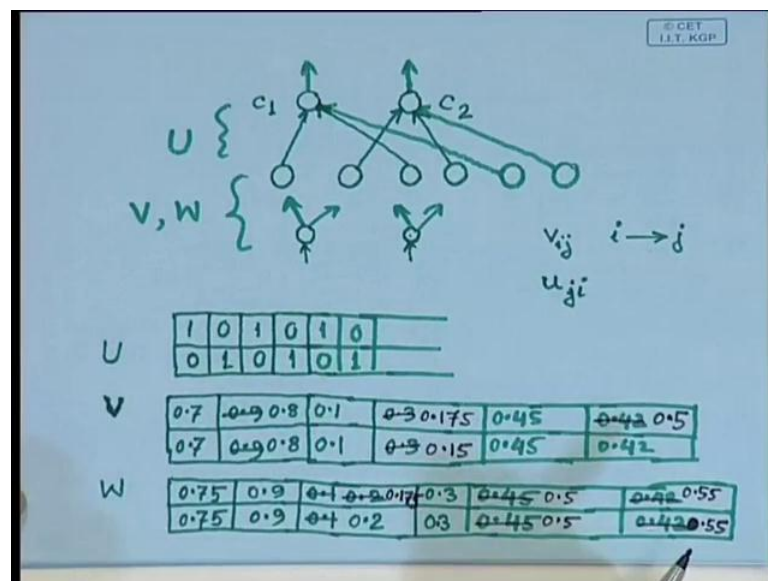 © CET
I.I.T. KGP
C1 C2
U {
V, W {
Vij i → j
Uji
U
1 0 1 0 1 0
0 1 0 1 0 1
V
0.7 0.9 0.8 0.1 0.3 0.175 0.45 0.42 0.5
0.7 0.9 0.8 0.1 0.3 0.15 0.45 0.42
W
0.75 0.9 0.1 0.2 0.175 0.3 0.45 0.5 0.42 0.55
0.75 0.9 0.1 0.2 0.3 0.45 0.5 0.42 0.55